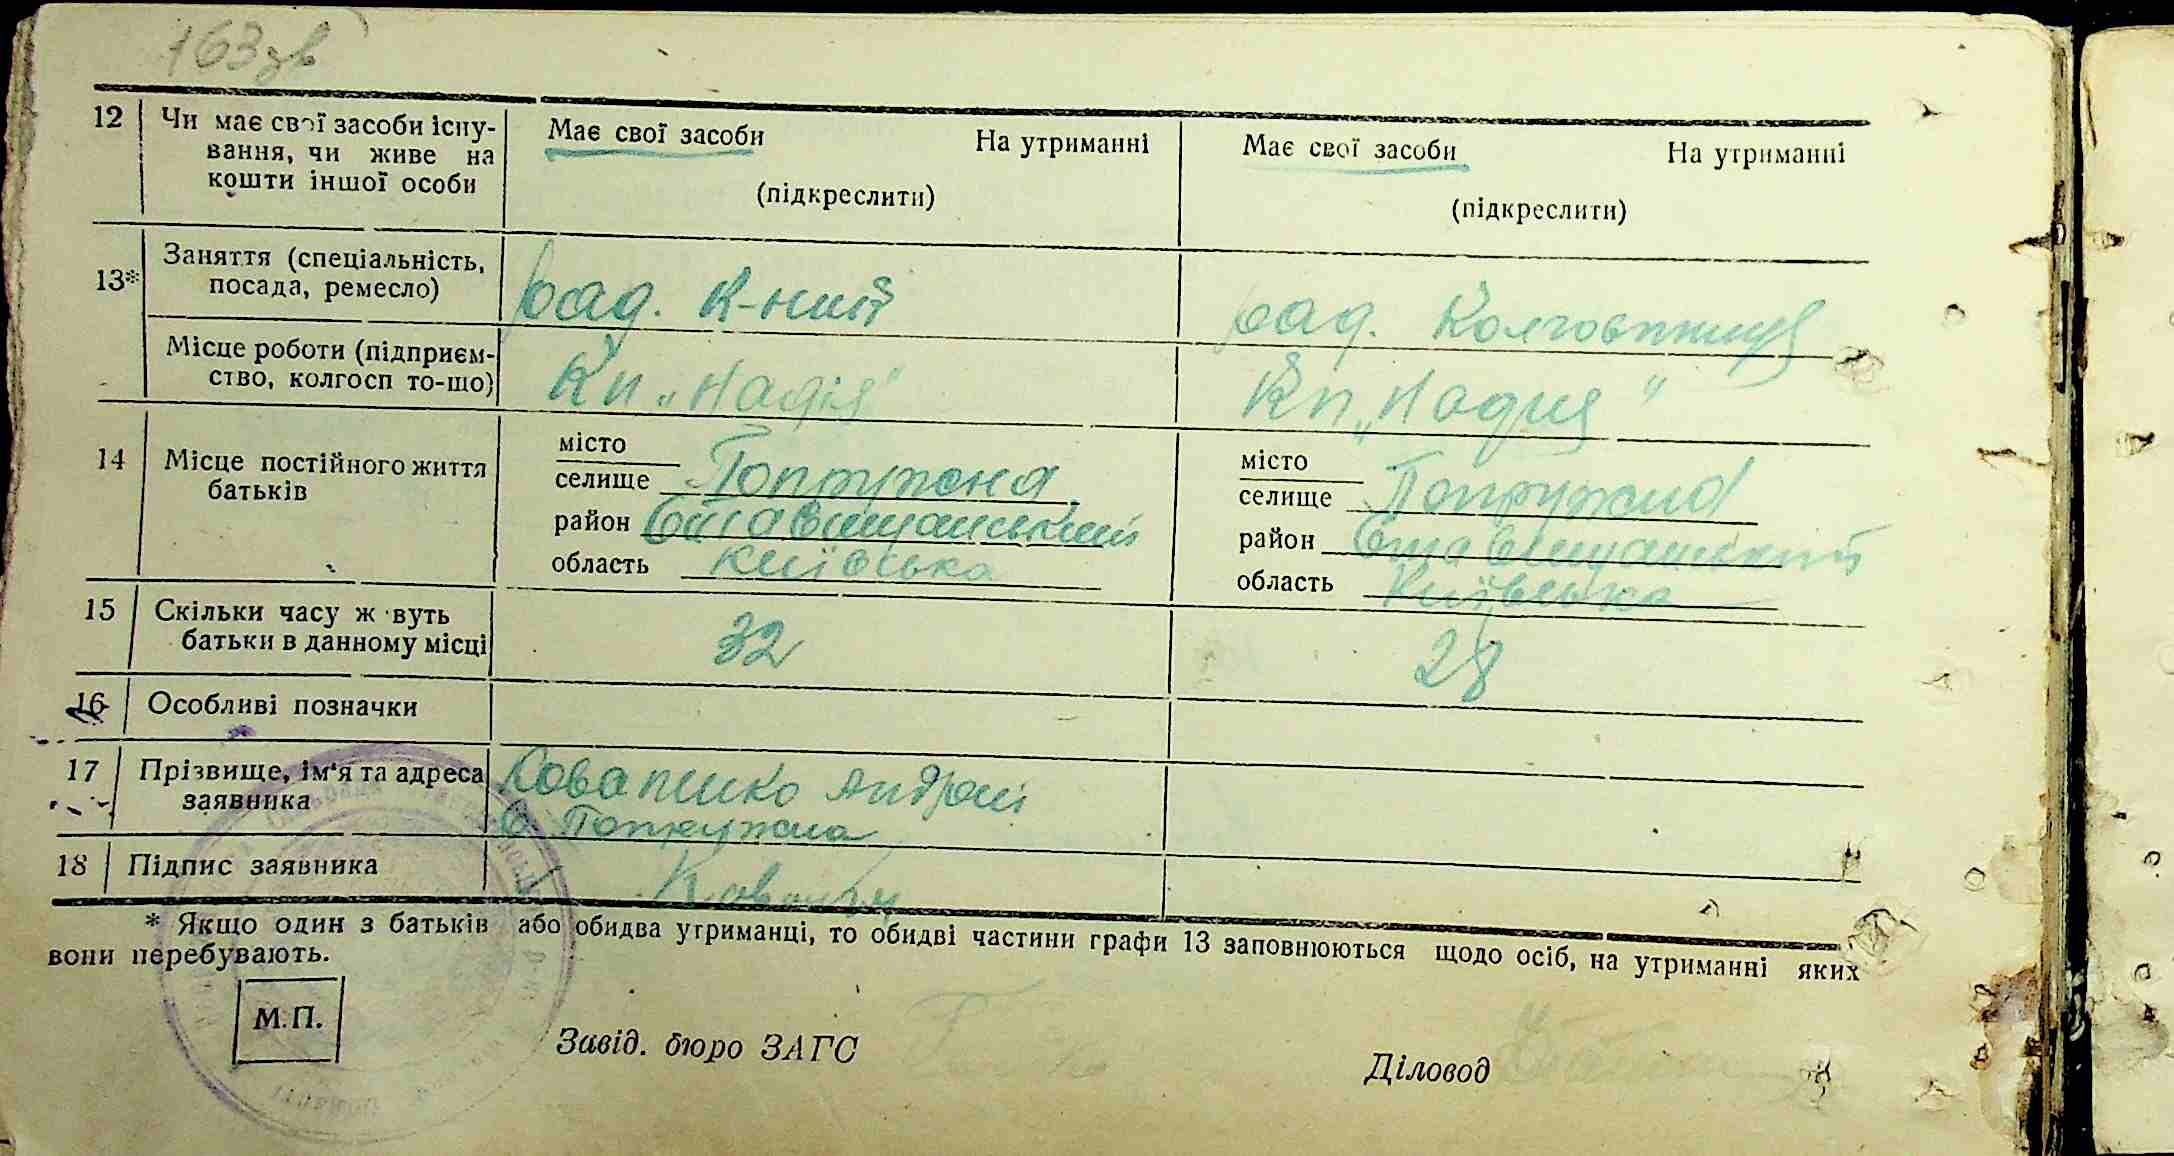 163 зв
12 Чи має свої засоби існу-
вання, чи живе на
кошти іншої особи
Має свої засоби На утриманні
(підкреслити)
Має свої засоби На утриманні
(підкреслити)
13* Заняття (спеціальність,
посада, ремесло)
ряд. к-ник
ряд. Колгоспниця
Місце роботи (підприєм-
ство, колгосп то-що)
Кп „Надія"
Кп „Надия"
14 Місце постійного життя
батьків
місто
селище Попружна
район Ставищанський
область Київська
місто
селище Попружна
район Ставищанський
область Київська
15 Скільки часу ж вуть
батьки в данному місці
32
28
16 Особливі позначки
17 Прізвище, ім'я та адреса
заявника
Андрій
с Попружна
18 Підпис заявника
* Якщо один з батьків або обидва утриманці, то обидві частини графи 13 заповнюються щодо осіб, на утриманні яких
вони перебувають.
М.П.
Завід. бюро ЗАГС
Діловод